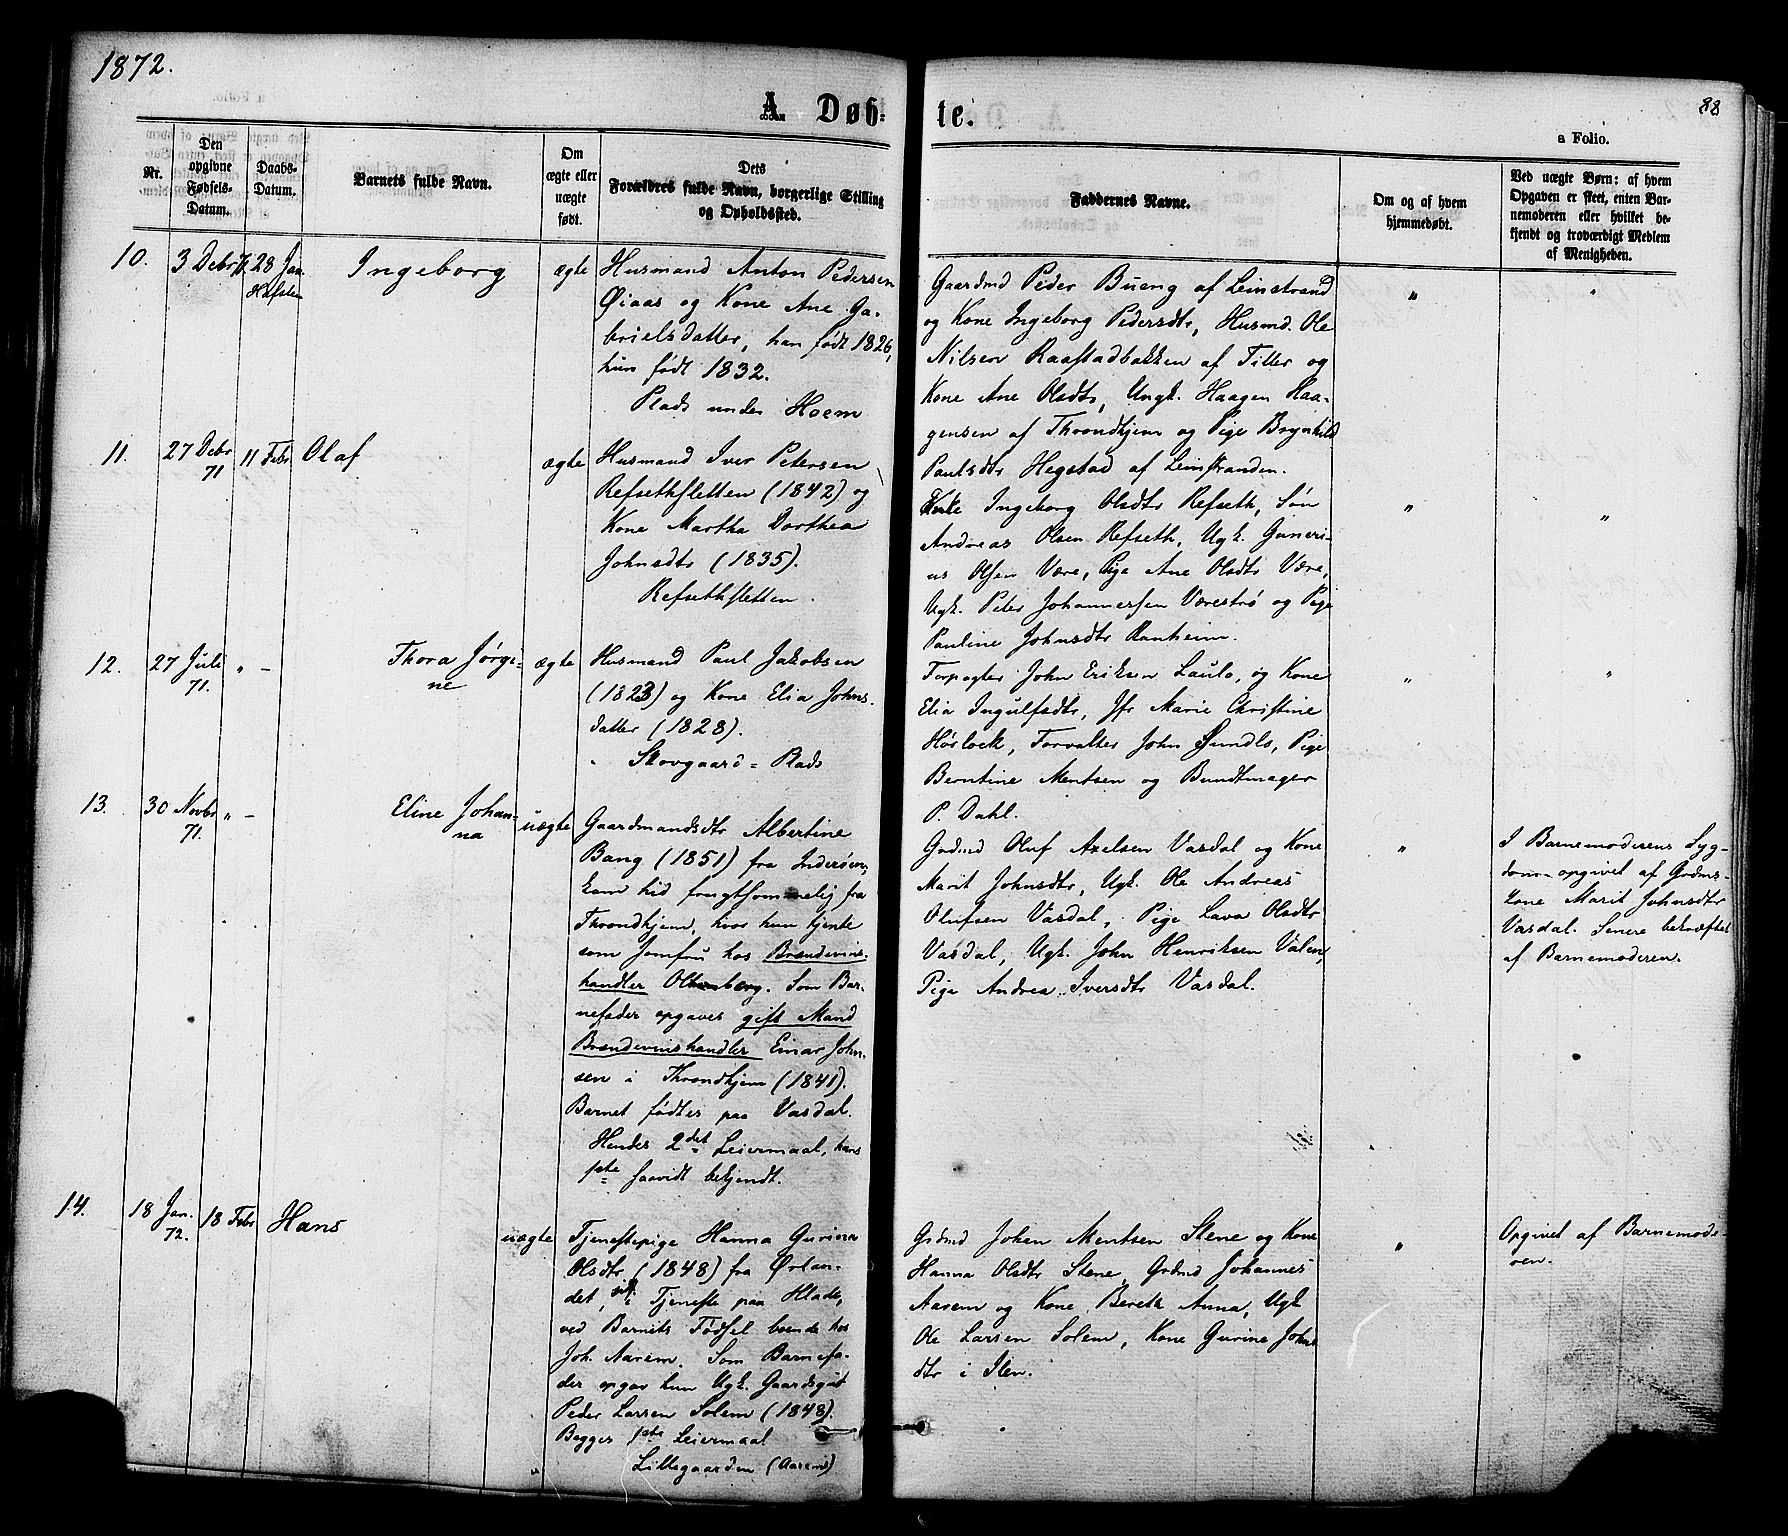 1872.
88
A. Døb-
te.
a Folio.
Nr.
Den
opgivne
Fødsels-
Datum.
Daabs-
Datum.
Barnets fulde Navn.
Om
ægte eller
uægte
født.
Dets
Forældres fulde Navn, borgerlige Stilling
og Opholdssted.
Faddernes Navne.
Om og af hvem
hjemmedøbt.
Ved uægte Børn: af hvem
Opgaven er skeet, enten Bar-
nemoderen eller hvilket be-
kjendt og troværdigt Medlem
af Menigheden.
10.
3 Debr 71.
28 Jan.
Ingeborg
ægte
Husmand Anton Pedersen
Øiaas og Kone Ane Ga-
brielsdatter, han født 1826,
hun født 1832.
Plads under Hoem
Gaardmd Peder Bueng af Leinstrand
og Kone Ingeborg Pedersdtr, Husmd. Ole
Nilsen Raastadbakken af Tiller og
Kone Ane Olsdtr, Ungk. Haagen Haa-
gensen af Throndhjem og Pige Brynhild
Paulsdtr Hegstad af Leinstranden.
"
"
11.
27 Debr
71
11 Febr
Olaf
ægte
Husmand Iver Petersen
Refsethsletten (1842) og
Kone Martha Dorthea
Johnsdtr (1835).
Refsethsletten.
Enke Ingeborg Olsdtr Refseth, Søn
Andreas Olsen Refseth, Ugk. Guneri-
us Olsen Være, Pige Ane Olsdtr Være,
Ugk. Peter Johannessen Værestrø og Pige
Pauline Johnsdtr Ranheim.
"
"
12.
27 Juli
71.
" -
Thora Jørgi-
ne
ægte
Husmand Paul Jakobsen
(1823) og Kone Elia Johns-
datter (1828).
" Skovgaard = Plads
Forpagter John Eriksen Laulo, og Kone
Elia Ingulfsdtr, Jfr Marie Christine
Hørlock, Forvalter John Sundlo, Pige
Berntine Mentsen og Bundtmager
P. Dahl.
"
"
13.
30 Novbr
71.
" -
Eline Johan-
na
uægte
Gaardmandsdtr Albertine
Bang (1851) fra Inderøen,
kom hid frugtsommelig fra
Throndhjem, hvor hun tjente
som Jomfru hos Brændevins-
handler Oldenberg. Som Bar-
nefader opgaves gift Mand
Brændevinshandler Einar John-
sen i Throndhjem (1841).
Barnet fødtes paa Vasdal.
Hendes 2det Leiermaal, hans
1ste saavidt bekjendt.
Grdmd Oluf Axelsen Vasdal og Kone
Marit Johnsdtr, Ugk. Ole Andreas
Olufsen Vasdal, Pige Lava Olsdtr
Vasdal, Ugk. John Henriksen Valen,
Pige Andrea Iversdtr Vasdal.
"
I Barnemoderens Syg-
dom opgivet af Grdms-
kone Marit Johnsdtr
Vasdal. Senere bekræftet
af Barnemoderen.
14.
18 Jan.
72.
18 Febr
Hans
uægte
Tjenestepige Hanna Gurina
Olsdtr (1848) fra Ørlan-
det, i Tjeneste paa Hlade,
ved Barnets Fødsel boende hos
Joh. Aarem. Som Barnefa-
der opgav hun Ugk. Gaardsgut
Peder Larsen Solem (1848).
Begges 1ste Leiermaal
Lillegaarden (Aarem)
Grdmd Johan Mentsen Stene og Kone
Hanna Olsdtr Stene, Grdmd Johannes
Aarem og Kone Bereth Anna, Ugk
Ole Larsen Solem, Kone Gurine Johns
dtr i Ilen.
"
Opgivet af Barnemode-
ren.